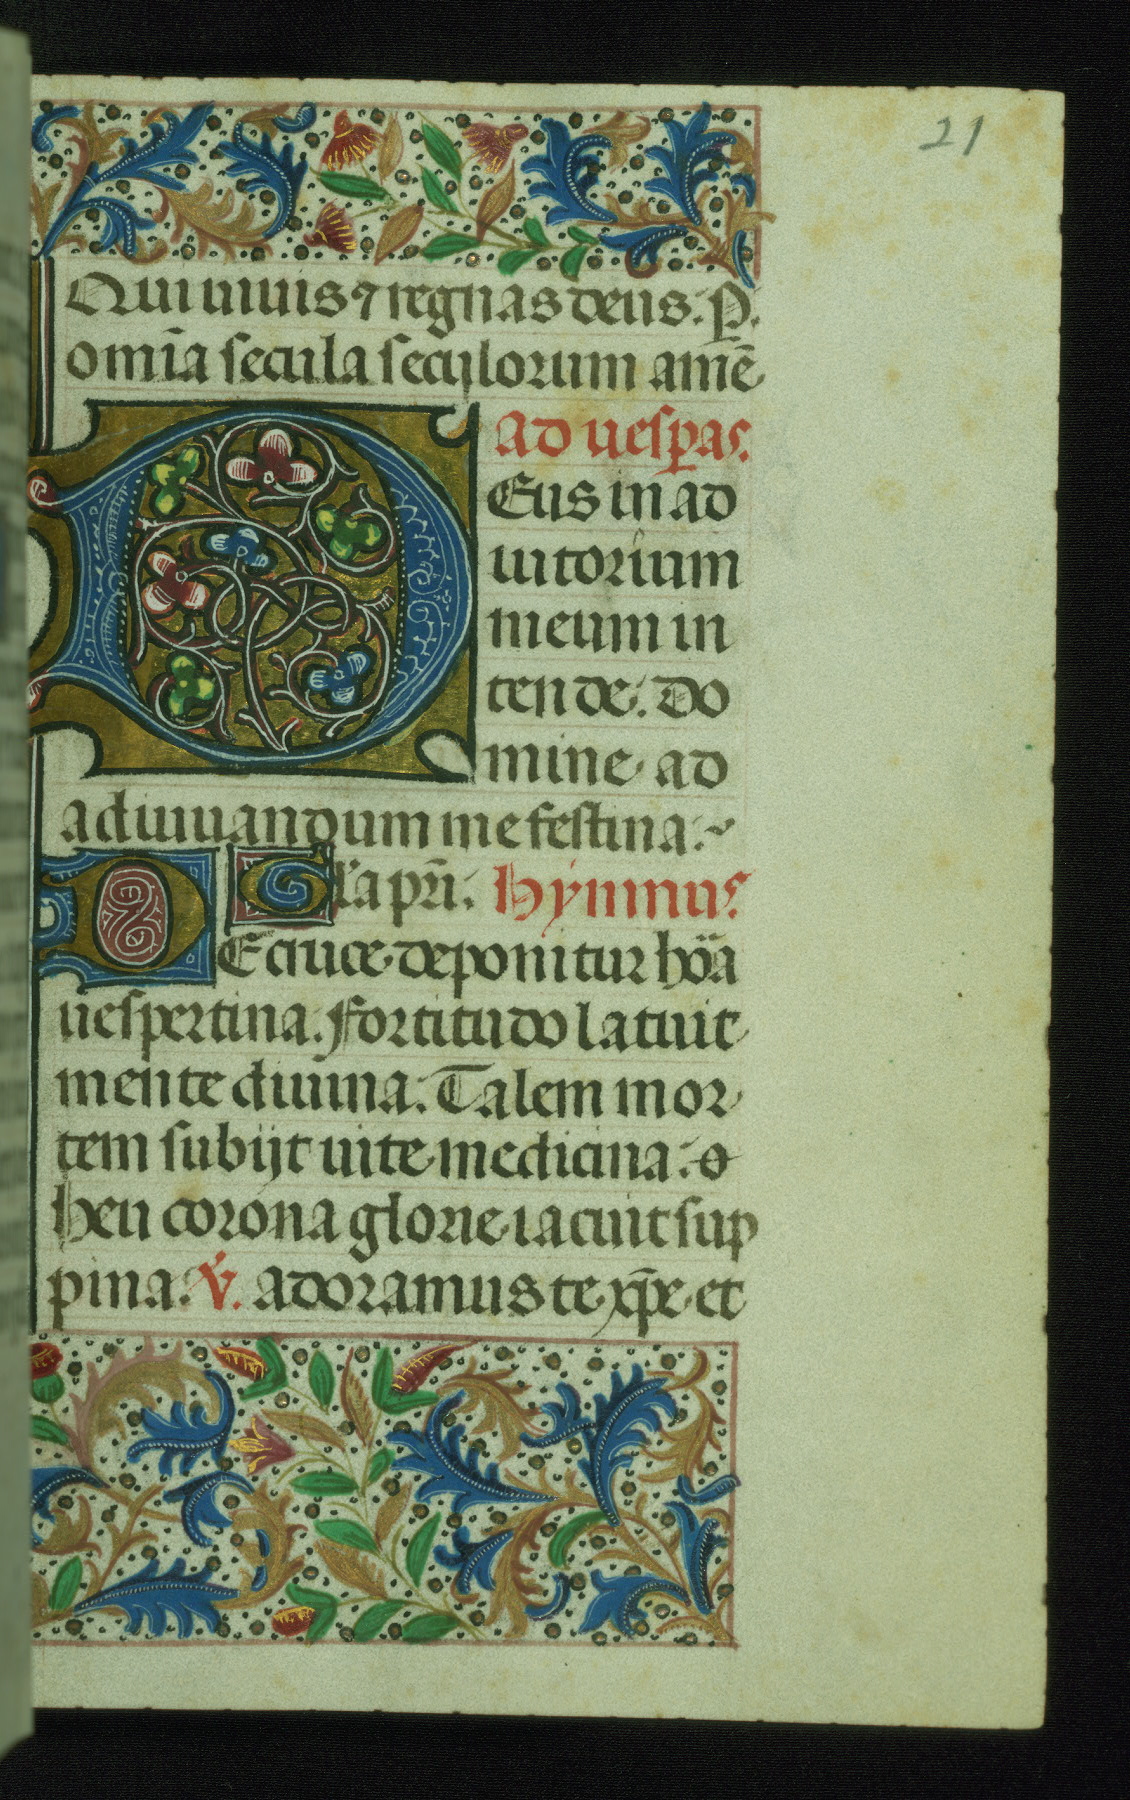 21
Qui uiuis ⁊ regnas deus. P.
om̄ia secula seculorum amē
Ad uesꝑas.
DEus in ad
iutorium
meum in
tende. Do
mine ad
adiuuandum me festina:~
Gl'a pr̄i. Hymnus.
DE cruce deponitur hoā
uespertina. Fortitudo latuit
mente diuina. Talem mor
tem subijt uite medicina. o
heu corona glorie iacuit sup
pina. V. Adoramus te xp̄e et